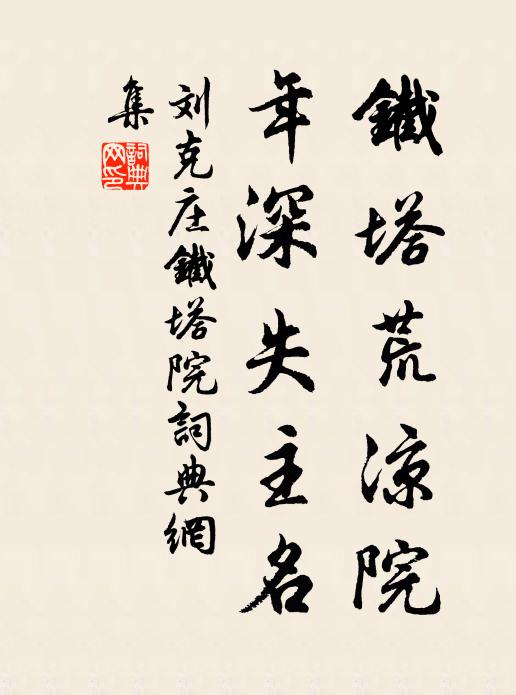 鐵塔荒凉院
年深失主名
刘克庄鐵塔院詞典網
集
詞典網印